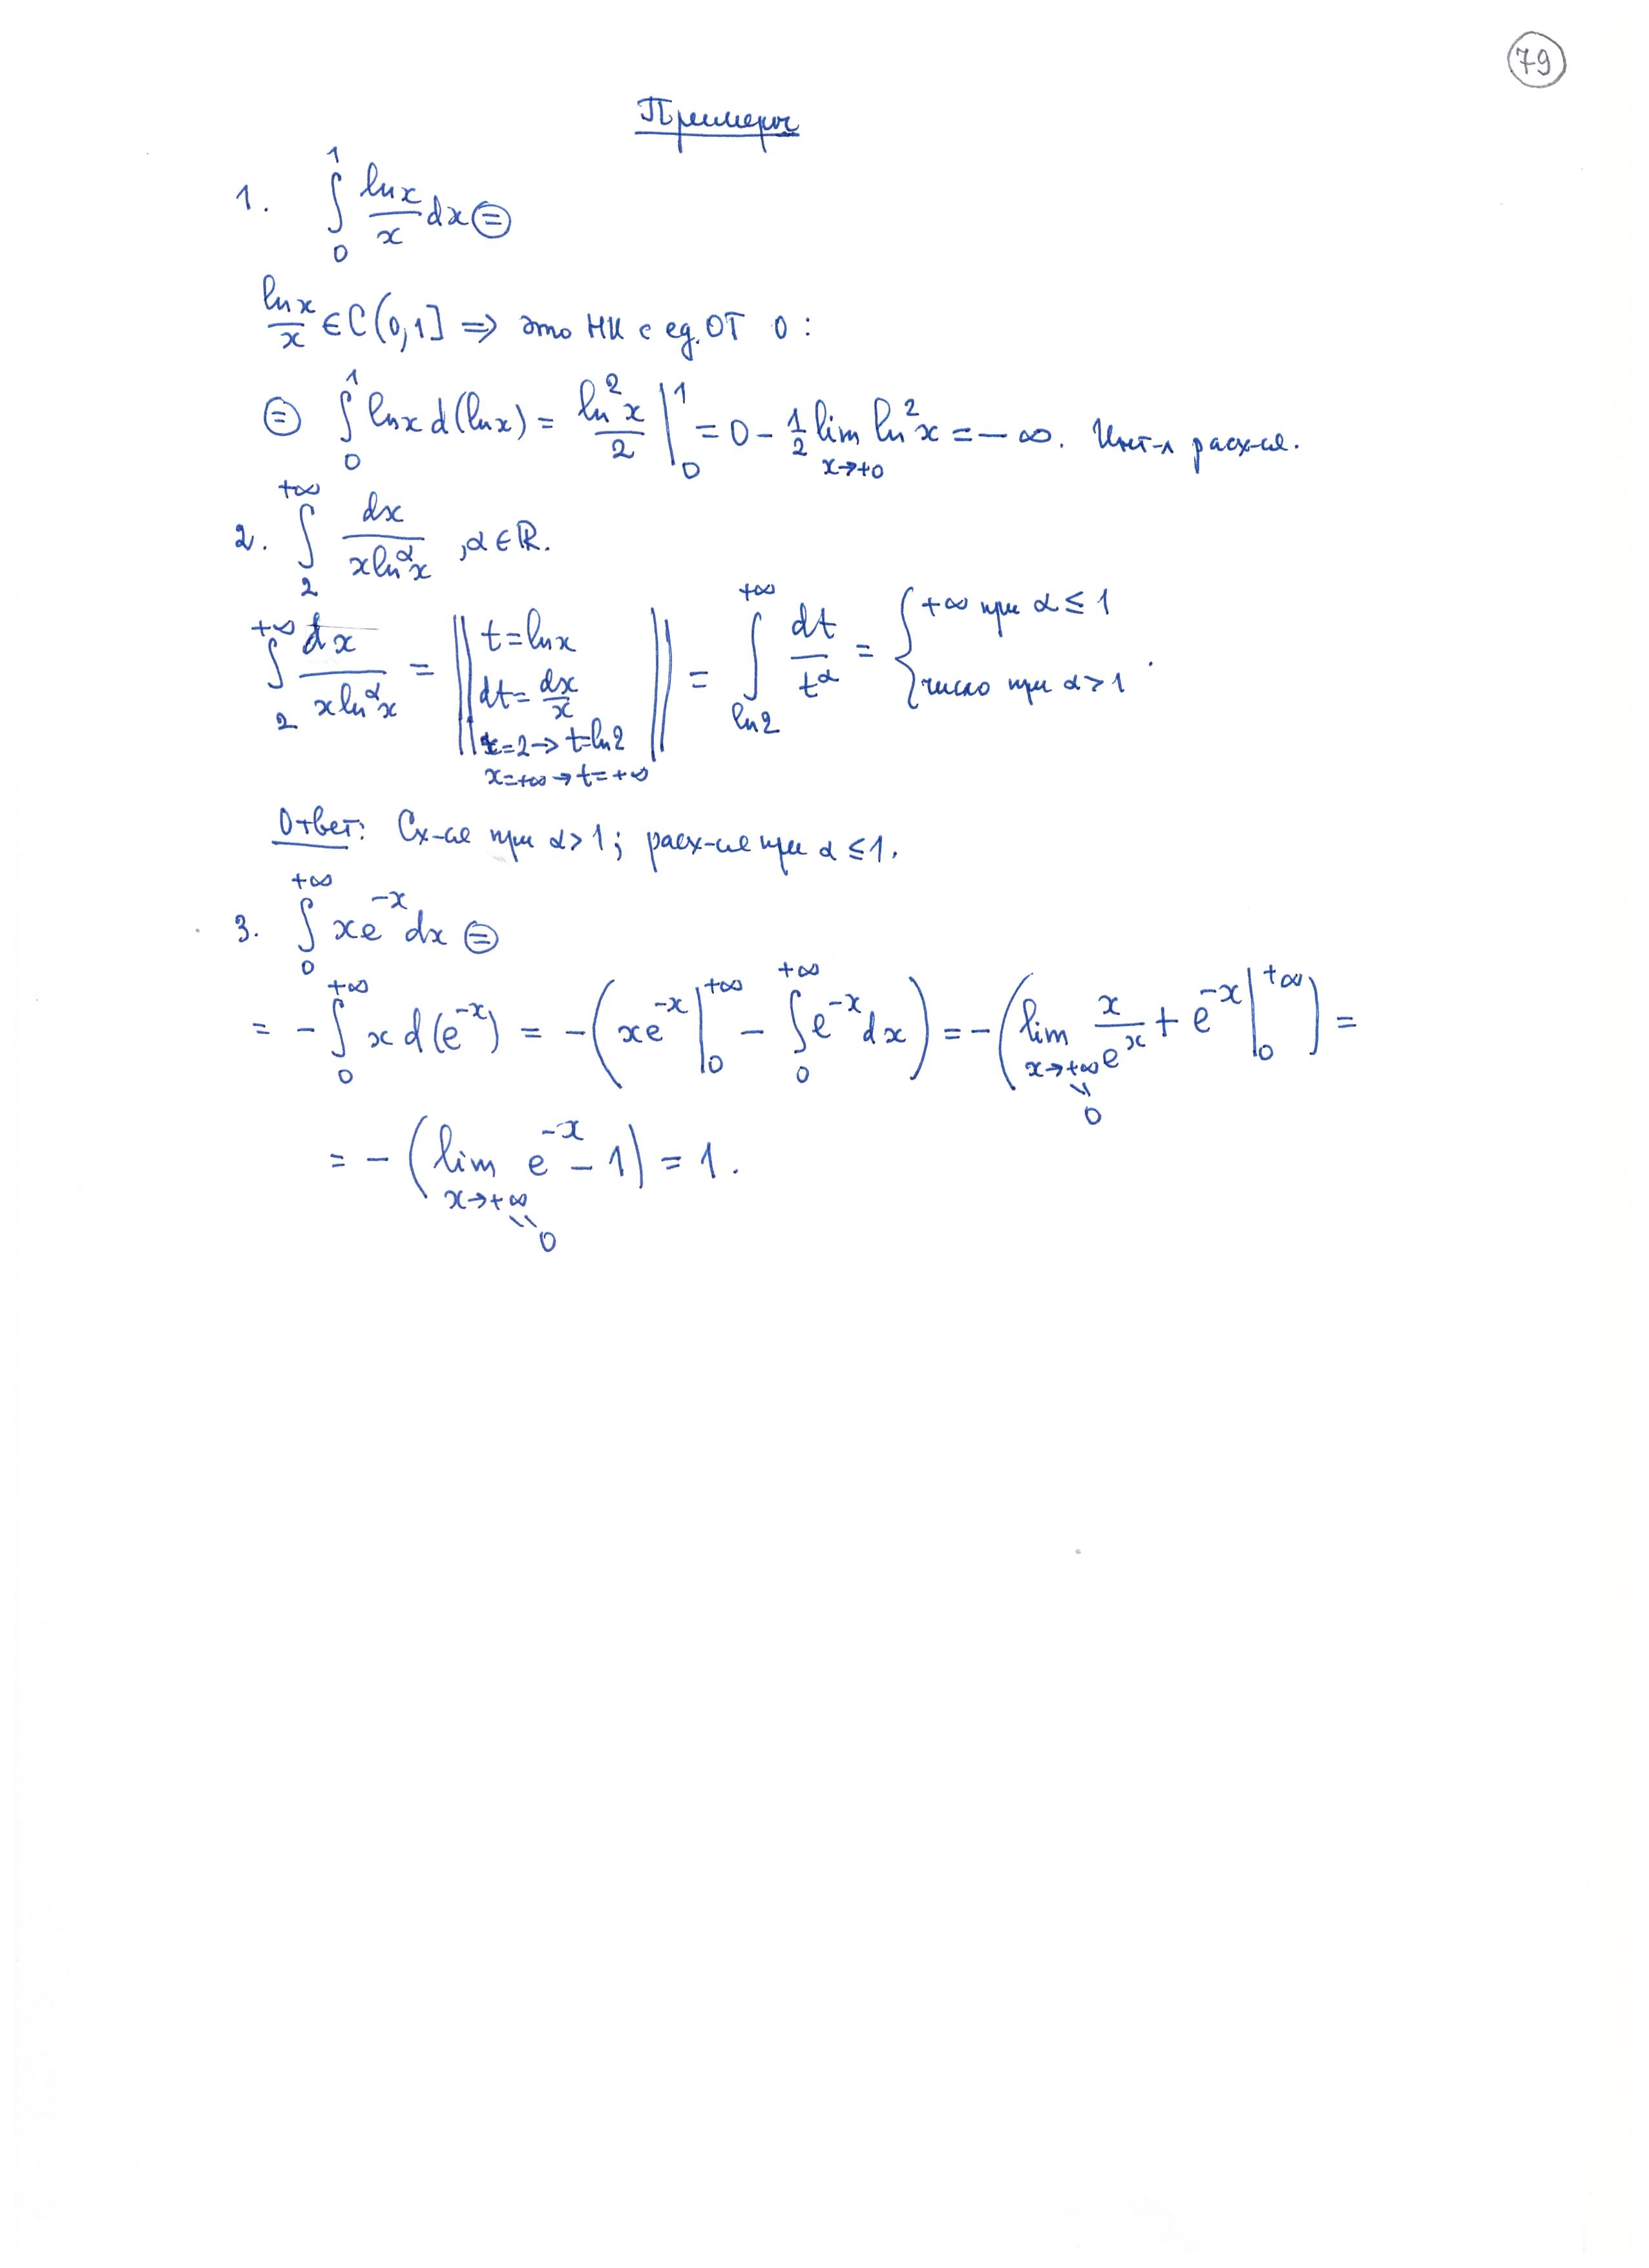 79
Примеры
1. ∫₀¹ (ln x / x) dx ⊜
ln x / x ∈ C(0,1] ⇒ это НИ с ед. ОТ 0 :
⊜ ∫₀¹ ln x d(ln x) = (ln²x / 2) |₀¹ = 0 - (1/2) lim_{x→+0} ln²x = -∞. Инт-л расх-ся.
2. ∫₂^{+∞} dx / (x ln^α x) , α ∈ ℝ.
∫₂^{+∞} dx / (x ln^α x) = ‖ t = ln x; dt = dx/x; x=2 → t=ln2; x=+∞ → t=+∞ ‖ = ∫_{ln2}^{+∞} dt / t^α = { +∞ при α ≤ 1; число при α > 1 .
Ответ: Сх-ся при α > 1 ; расх-ся при α ≤ 1.
3. ∫₀^{+∞} x e^{-x} dx ⊜
= - ∫₀^{+∞} x d(e^{-x}) = - ( x e^{-x} |₀^{+∞} - ∫₀^{+∞} e^{-x} dx ) = - ( lim_{x→+∞} x / e^x + e^{-x} |₀^{+∞} ) =
= 0
= - ( lim_{x→+∞} e^{-x} - 1 ) = 1 .
= 0